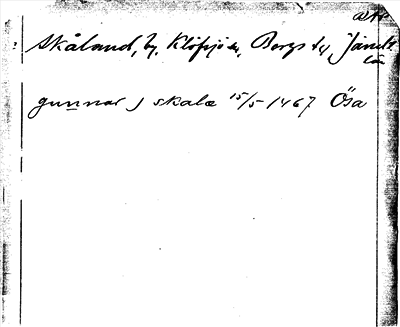 Skåland, by, Klöfsjö sn, Bergs tg, Jämtl.
län
gunnar j skala 15/5 1467 Ösa